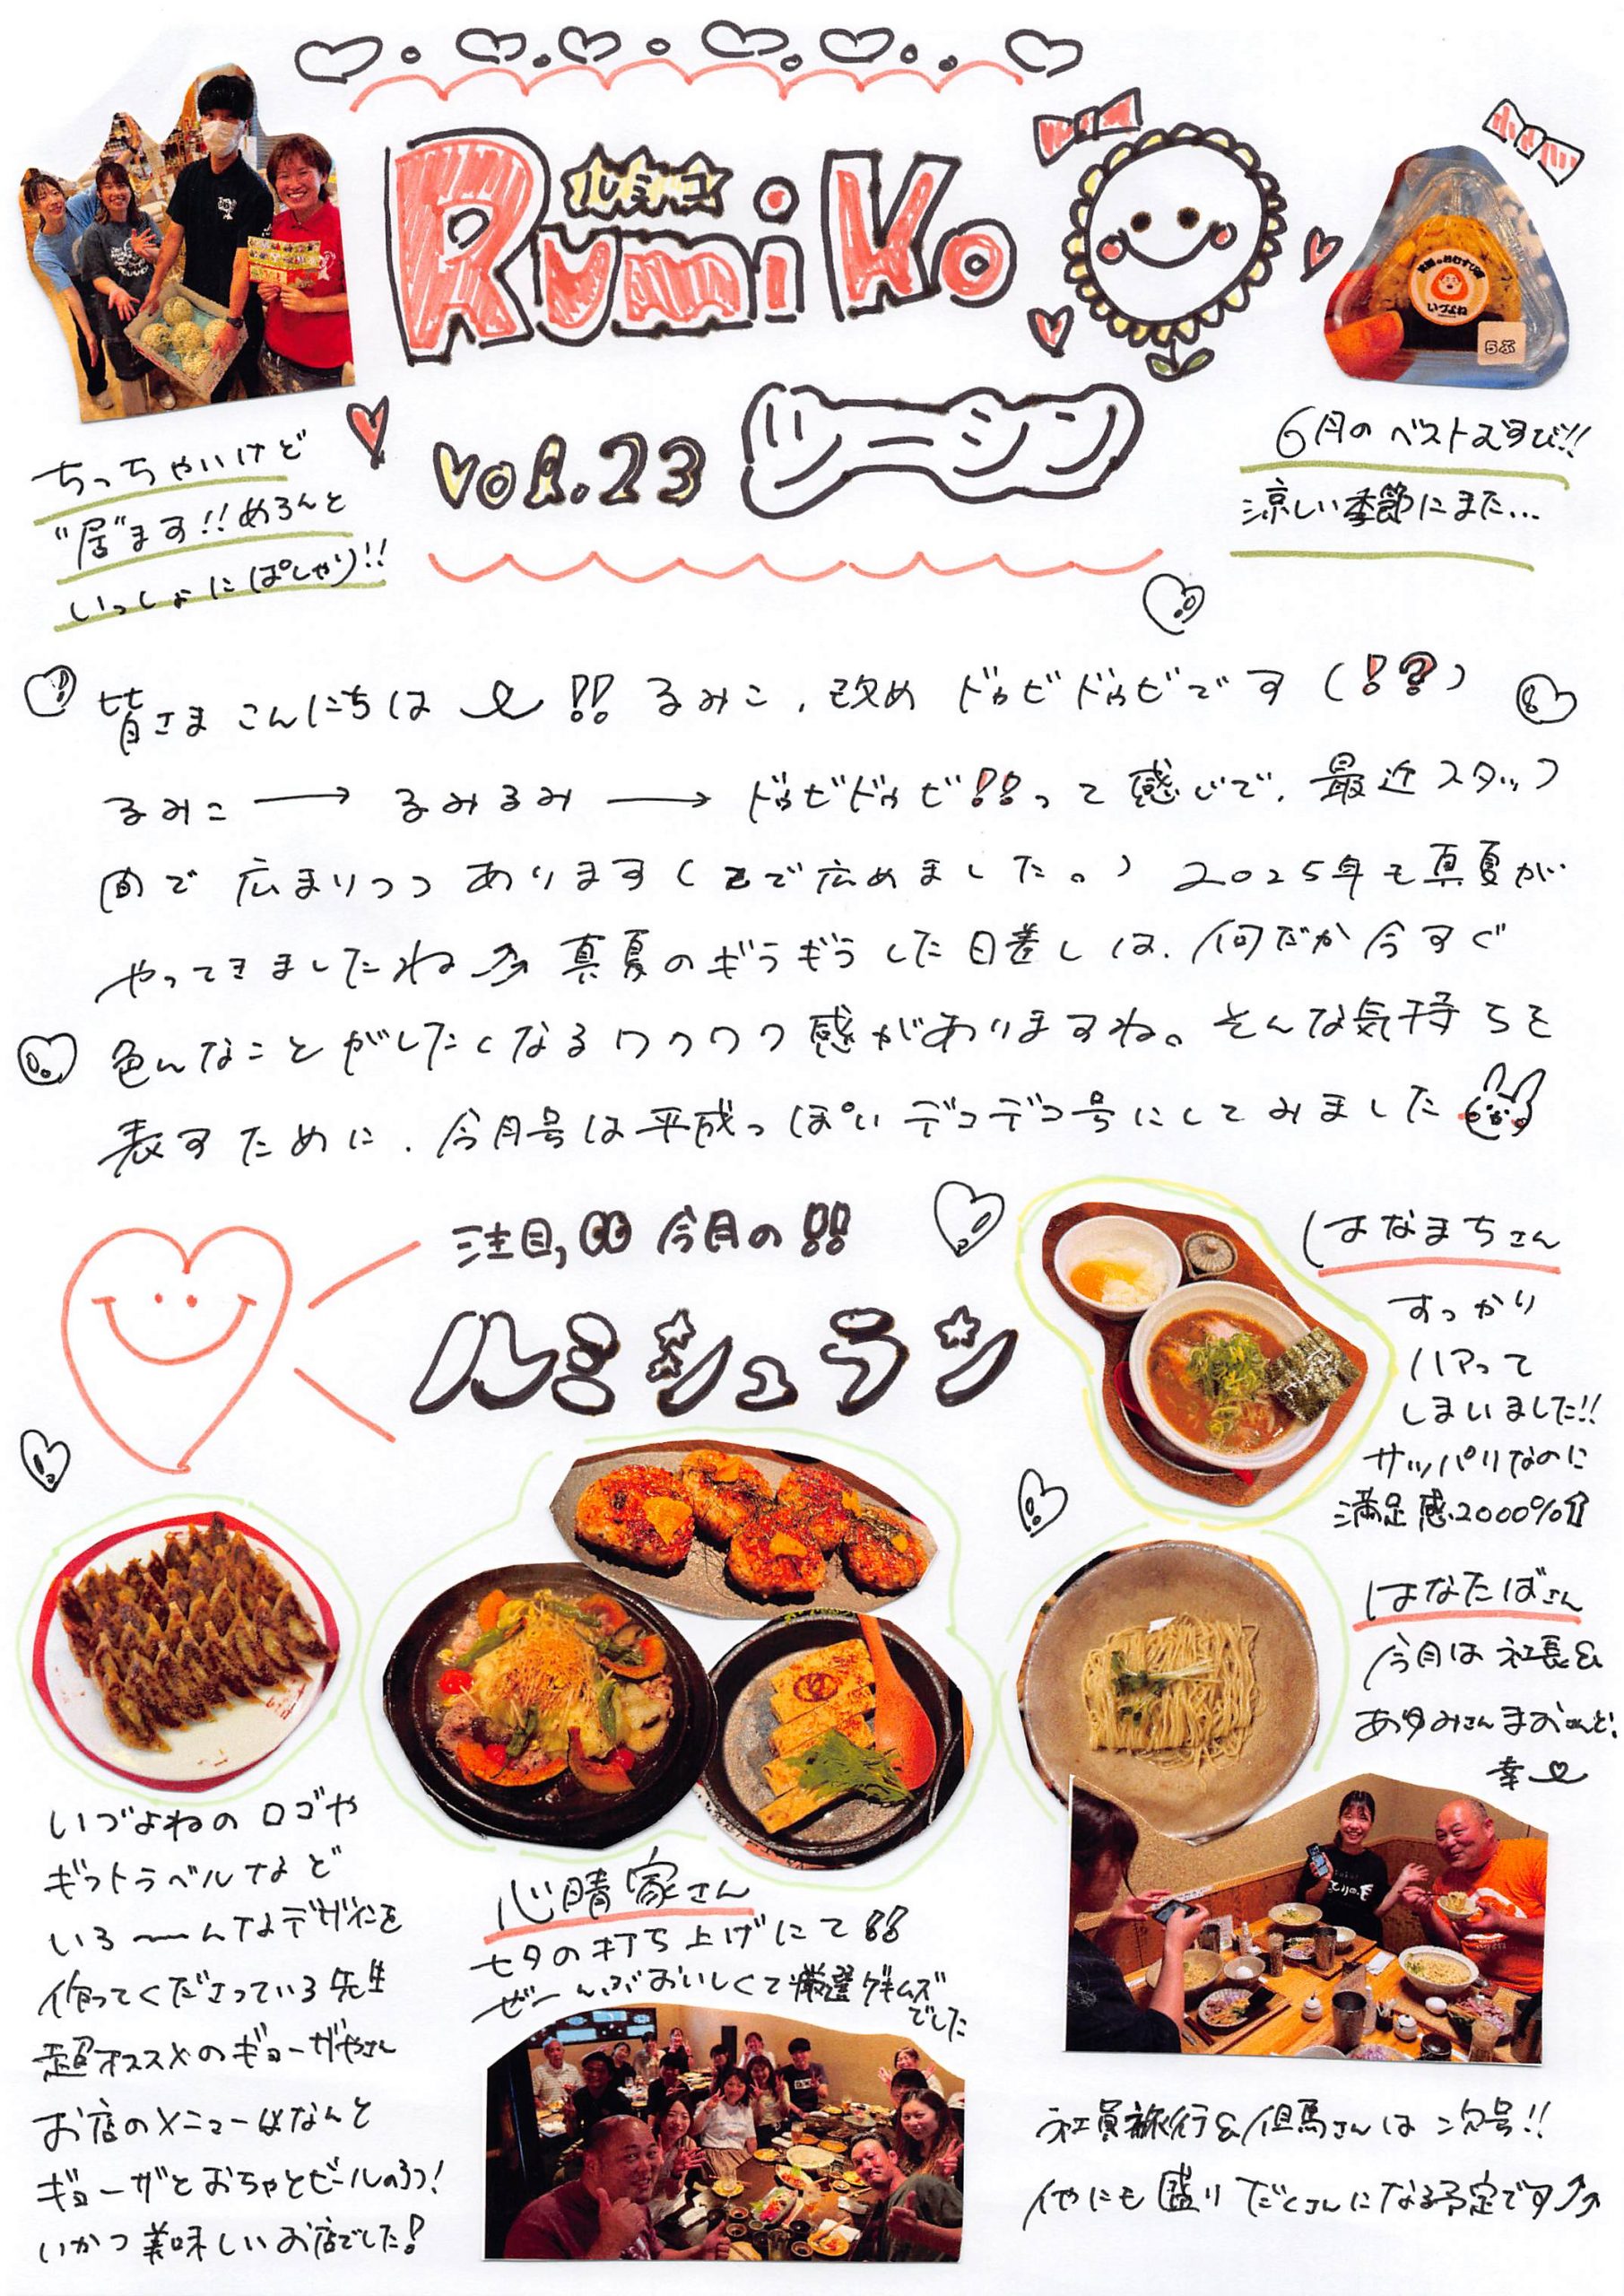 ルミコ
RumiKo
vol.23 ツーシン
ちっちゃいけど
"居"ます!!めろんと
いっしょにぱしゃり!!
いづよね
5ぶ
6月のベストむすび!!
涼しい季節にまた...
皆さまこんにちは!! るみこ、改めドゥビドゥビです(!?)
るみこ → るみるみ → ドゥビドゥビ!!って感じで、最近スタッフ
間で広まりつつあります(で広めました。) 2025年も真夏が
やってきましたね 真夏のギラギラした日差しは、何だか今すぐ
色んなことがしたくなるワクワク感がありますね。そんな気持ちを
表すために、今月号は平成っぽいデコデコ号にしてみました
注目, 今月の!!
ルミシュラン
はなまちさん
すっかり
ハマって
しまいました!!
サッパリなのに
満足感2000%⇧
はなたばさん
今月は社長&
あゆみさんまおさんと。
幸
いづよねのロゴや
ギフトラベルなど
いろ〜んなデザインを
作ってくださっている先生
超オススメのギョーザやさん
お店のメニューはなんと
ギョーザとおちゃとビールの3つ!
いかつ美味しいお店でした!
心晴家さん
七夕の打ち上げにて!!
ぜーんぶおいしくて厳選
でした
社員旅行&但馬さんは次号!!
他にも盛りだくさんになる予定です